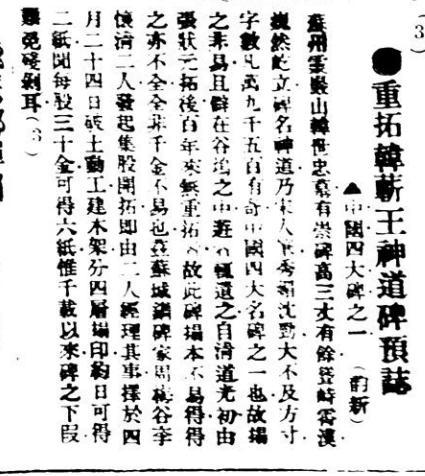 ●重拓韓蘄王神道碑預誌
▲中國四大碑之一 (韵新)
蘇州雲巖山韓世忠墓有崇碑高三丈有餘登峙霄漢
巍然屹立碑名神道乃宋人筆秀媚沈勁大不及方寸
字數凡萬九千五百有奇中國四大名碑之一也故搨
之非易且僻在谷塢之中遊 輒遺之自清道光初由
張狀元拓後百年來無重拓 故此碑搨本不易得得
之亦不全全非千金不易也 蘇城 碑家周梅谷李
懷清二人發起集股開拓即由二人經理其事擇於四
月二十四日破土動工建木架分四層搨印約日可得
二紙聞每股三十金可得六紙惟千載以來碑之下
免殘剝耳 (3)
(3)